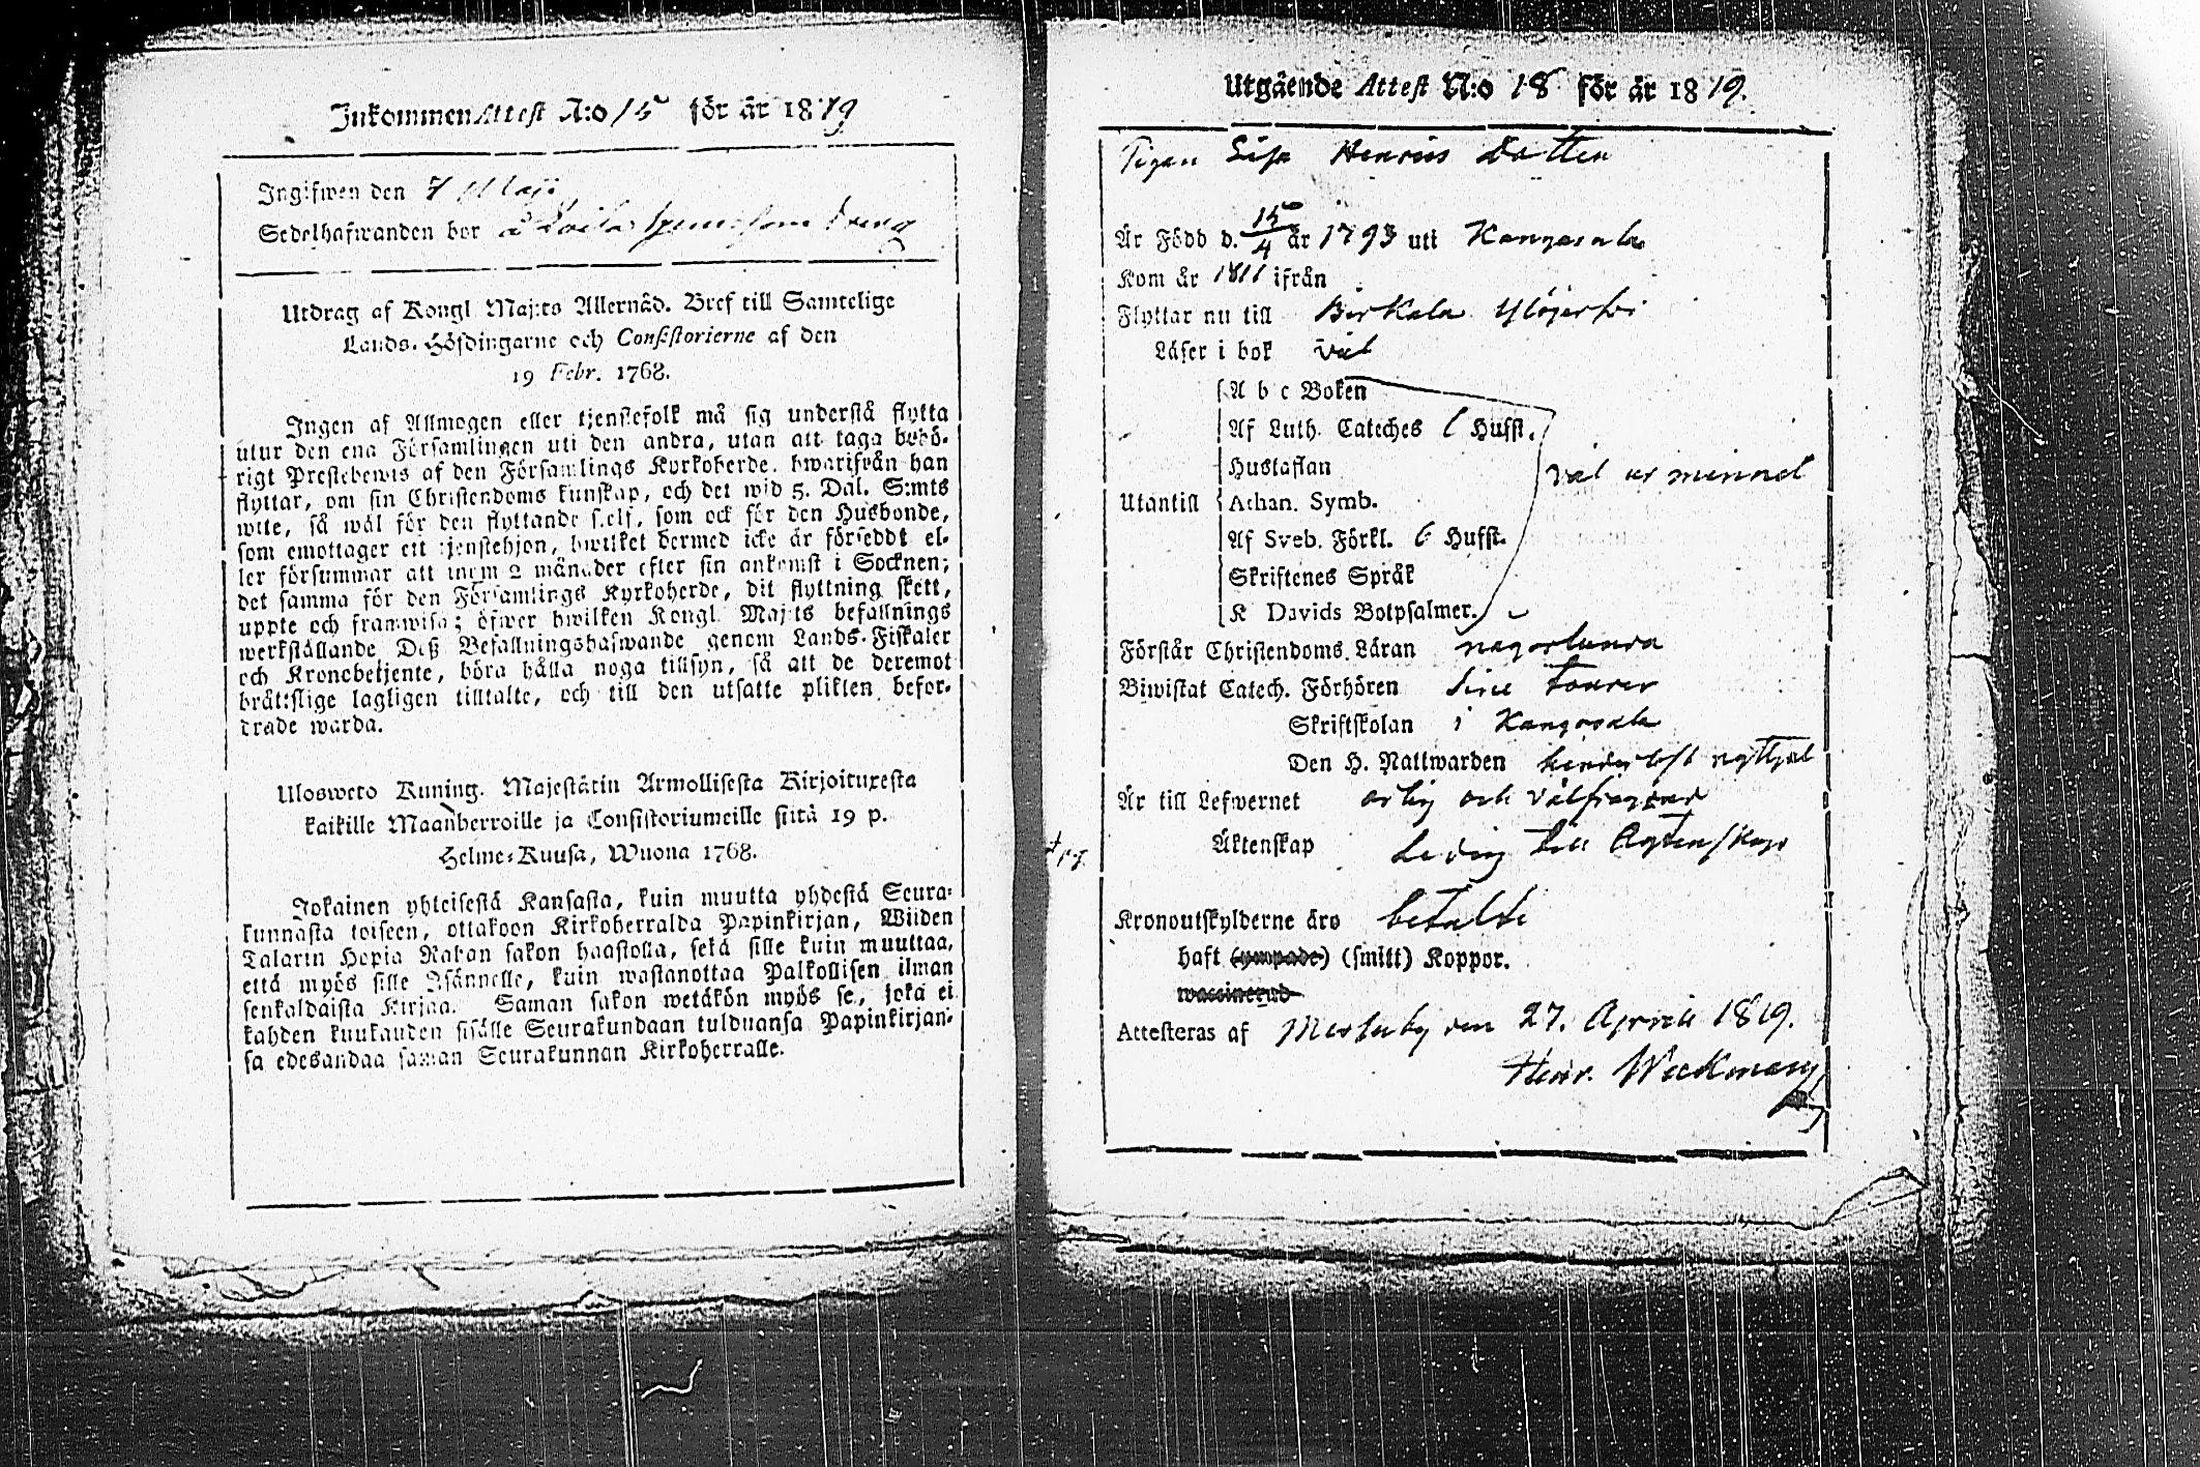 Inkommen Attest N:o 15 för år 1819
Ingifwen den 7 Maji
Sedelhafwanden bor å
Utdrag af Kongl Maj:ts Allernåd. Bref till Samtelige
Lands-Höfdingarne och Consistorierne af den
19 Febr. 1768.
Ingen af Allmogen eller tjenstefolk må sig understå flytta
utur den ena Församlingen uti den andra, utan att taga behö-
rigt Prestebewis af den Församlings Kyrkoherde, hwarifrån han
flyttar, om sin Christendoms kunskap, och det wid 5. Dal. S:mts
wite, så wäl för den flyttande sjelf, som ock för den Husbonde,
som emottager ett tjenstehjon, hwilket dermed icke är förseddt el-
ler försummar att inom 2 månader efter sin ankomst i Socknen;
det samma för den Församlings Kyrkoherde, dit flyttning skett,
uppte och framwisa; öfwer hwilken Kongl. Maj:ts befallnings
werkställande Deß Befallningshafwande genom Lands-Fiskaler
och Kronobetjente, böra hålla noga tillsyn, så att de deremot
brättslige lagligen tilltalte, och till den utsatte plikten befor-
drade warda.
Ulosweto Kuning. Majestätin Armollisesta Kirjoituxesta
kaikille Maanherroille ja Consistoriumeille siitä 19 p.
Helme-Kuusa, Wuona 1768.
Jokainen yhteisestä Kansasta, kuin muutta yhdestä Seura-
kunnasta toiseen, ottakoon Kirkoherralda Papinkirjan, Wiiden
Talarin Hopia Rahan sakon haastolla, sekä sille kuin muuttaa,
että myös sille Isännelle, kuin wastanottaa Palkollisen ilman
senkaldaista Kirjaa. Saman sakon wetäkön myös se, joka ei
kahden kuukauden sisälle Seurakundaan tulduansa Papinkirjan-
sa edesandaa saman Seurakunnan Kirkoherralle.
Utgående Attest N:o 18 för år 1819.
Pigan Lisa Henrics Dotter
Är Född d. 15/4 år 1793 uti Kangasala
Kom år 1811 ifrån
Flyttar nu till Birkala Ylöjerfvi
Läser i bok väl
A b c Boken
Af Luth. Cateches 6 Hufst.
Hustaflan
väl ur minnet
Utantill Athan. Symb.
Af Sveb. Förkl. 6 Hufst.
Skriftenes Språk
K Davids Botpsalmer.
Förstår Christendoms Läran någorlunda
Biwistat Catech. Förhören sine tourer
Skriftskolan i Kangasala
Den H. Nattwarden hinderlöst nyttjat
Är till Lefwernet ärlig och välfrägdad
Äktenskap Ledig till Ägtenskap
Kronoutskylderne äro betalde
haft (ympade) (smitt) Koppor.
waccinerad
Attesteras af Messuby den 27. Aprill 1819.
Henr. Weckman